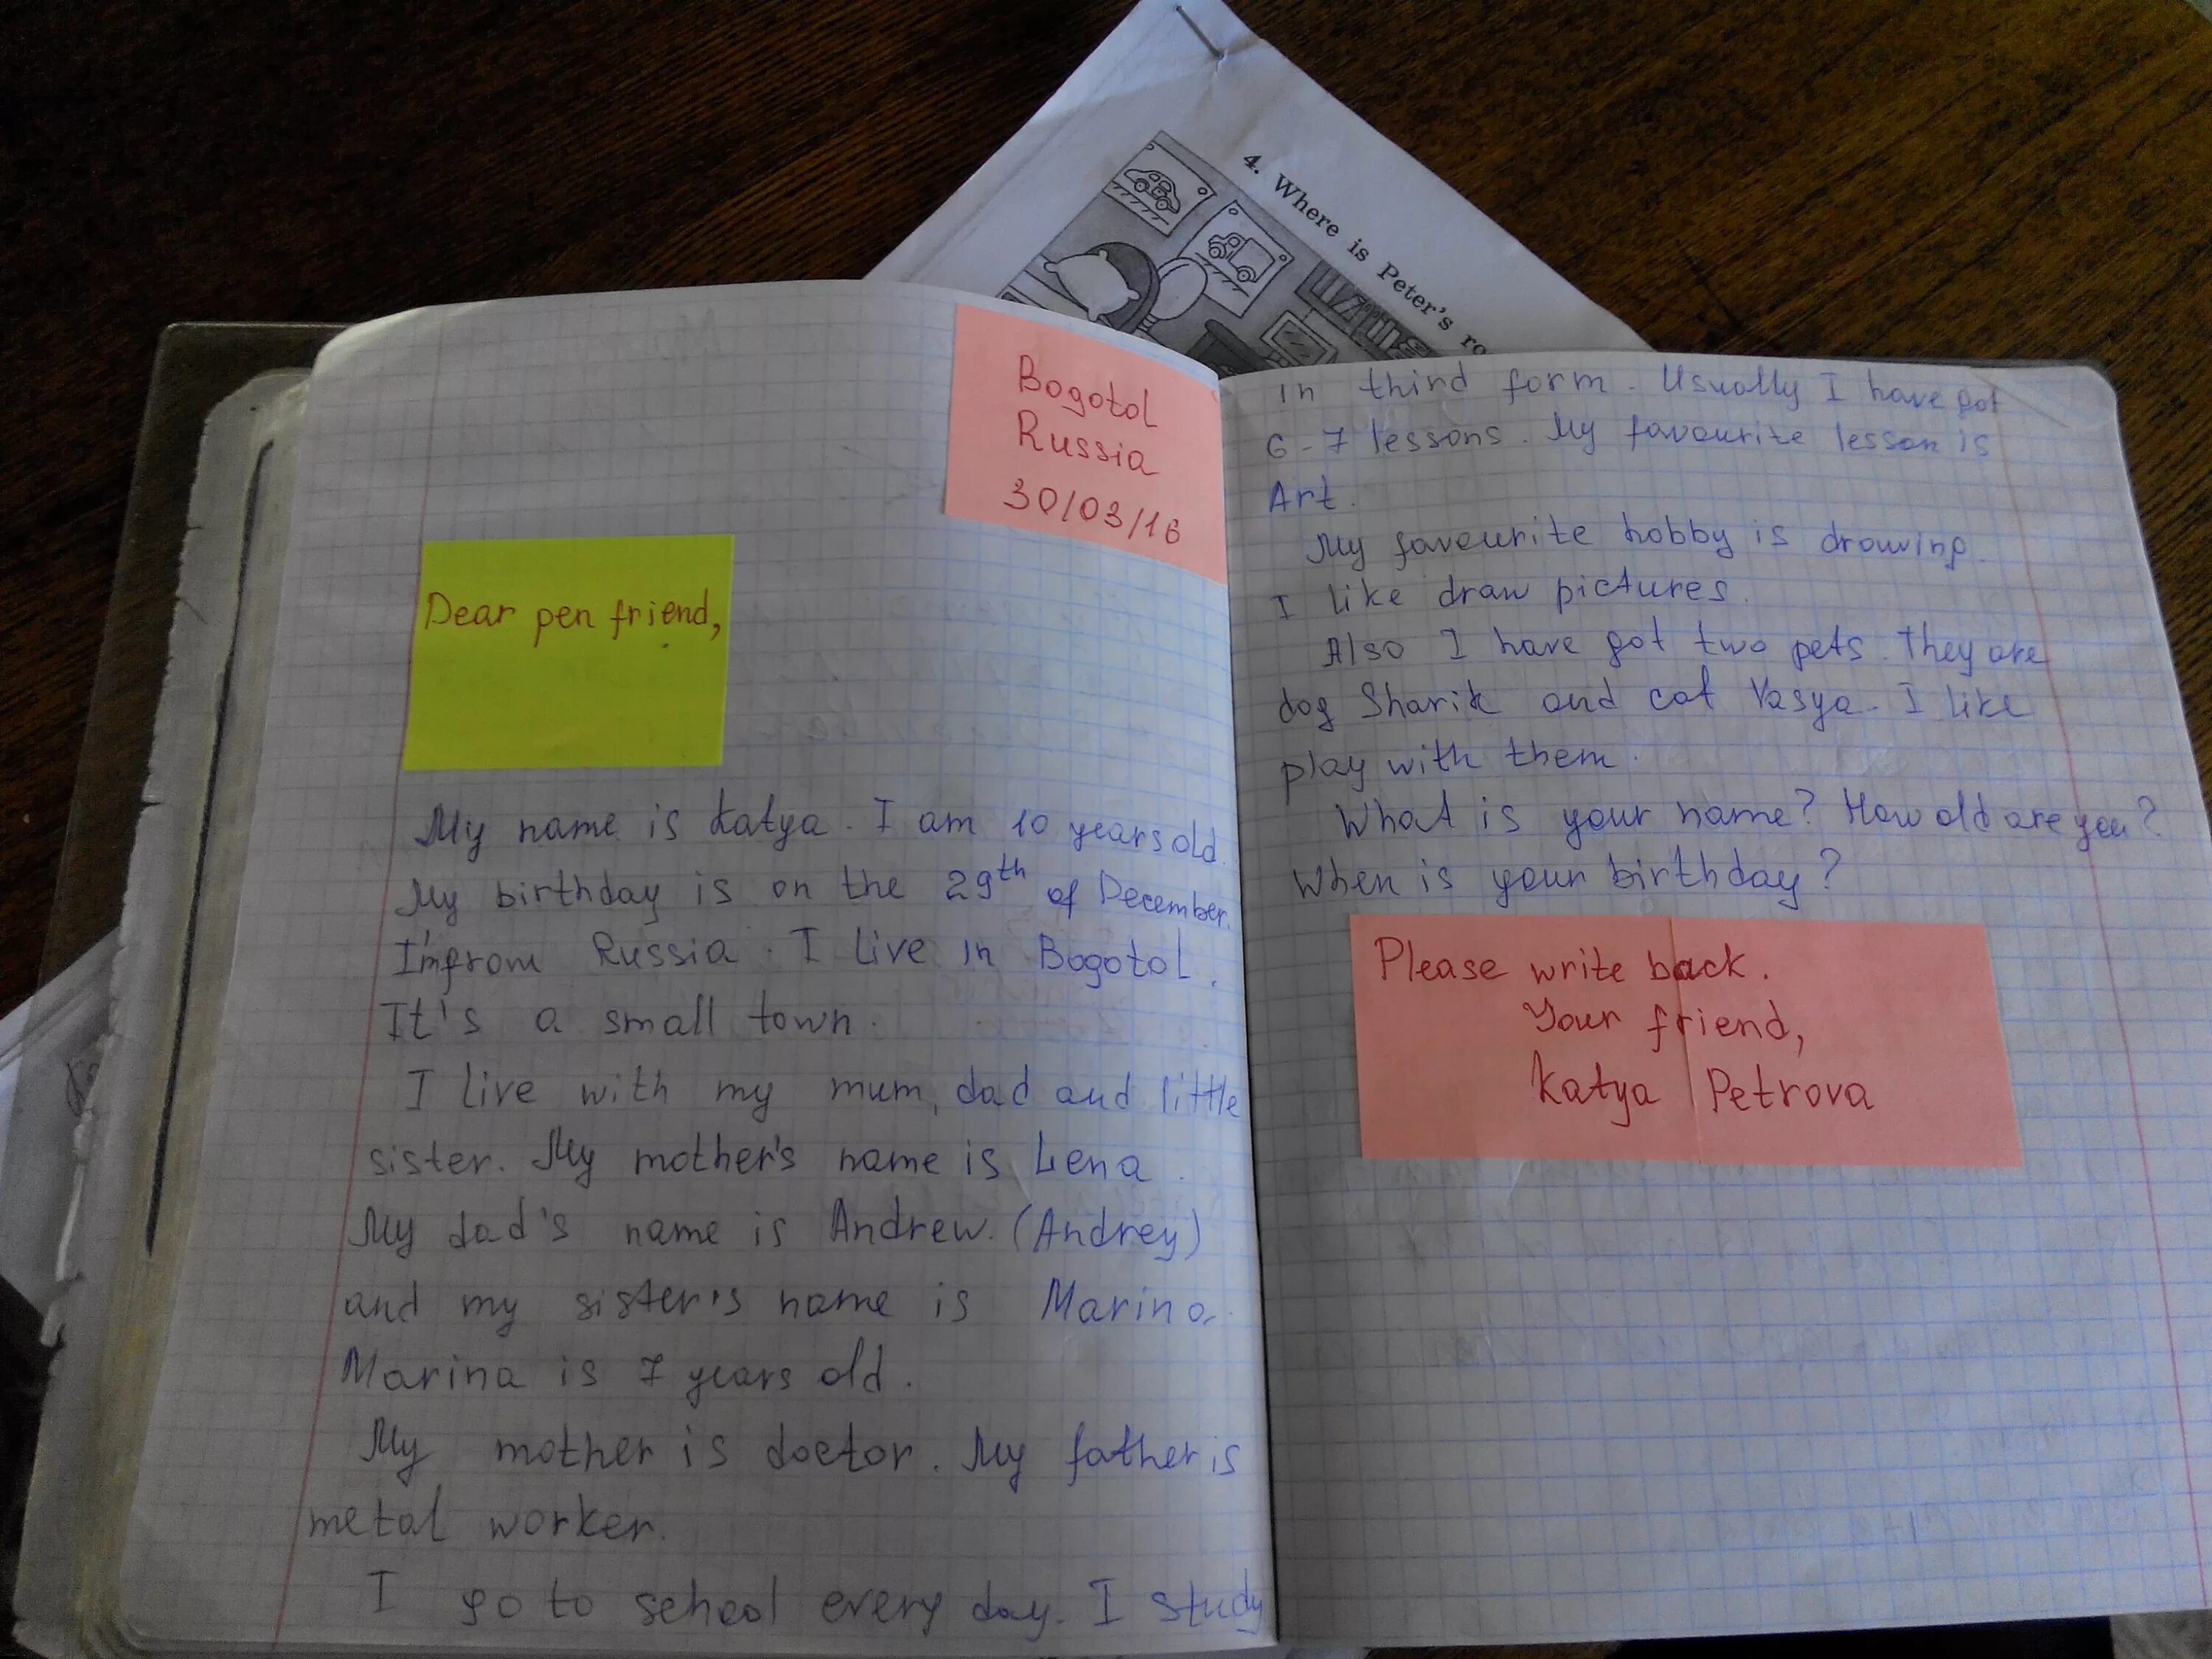 4. Where is Peter's ro
Bogotol
Russia
30/03/16
Dear pen friend,
My name is Katya. I am 10 years old.
My birthday is on the 29th of December.
I'm from Russia. I live in Bogotol.
It's a small town.
I live with my mum, dad and little
sister. My mother's name is Lena.
My dad's name is Andrew. (Andrey)
and my sister's name is Marina.
Marina is 7 years old.
My mother is doctor. My father is
metal worker.
I go to school every day. I study
in third form. Usually I have got
6-7 lessons. My favourite lesson is
Art.
My favourite hobby is drowing.
I like draw pictures.
Also I have got two pets. They are
dog Sharik and cat Vasya. I like
play with them.
What is your name? How old are you?
When is your birthday?
Please write back.
Your friend,
Katya Petrova